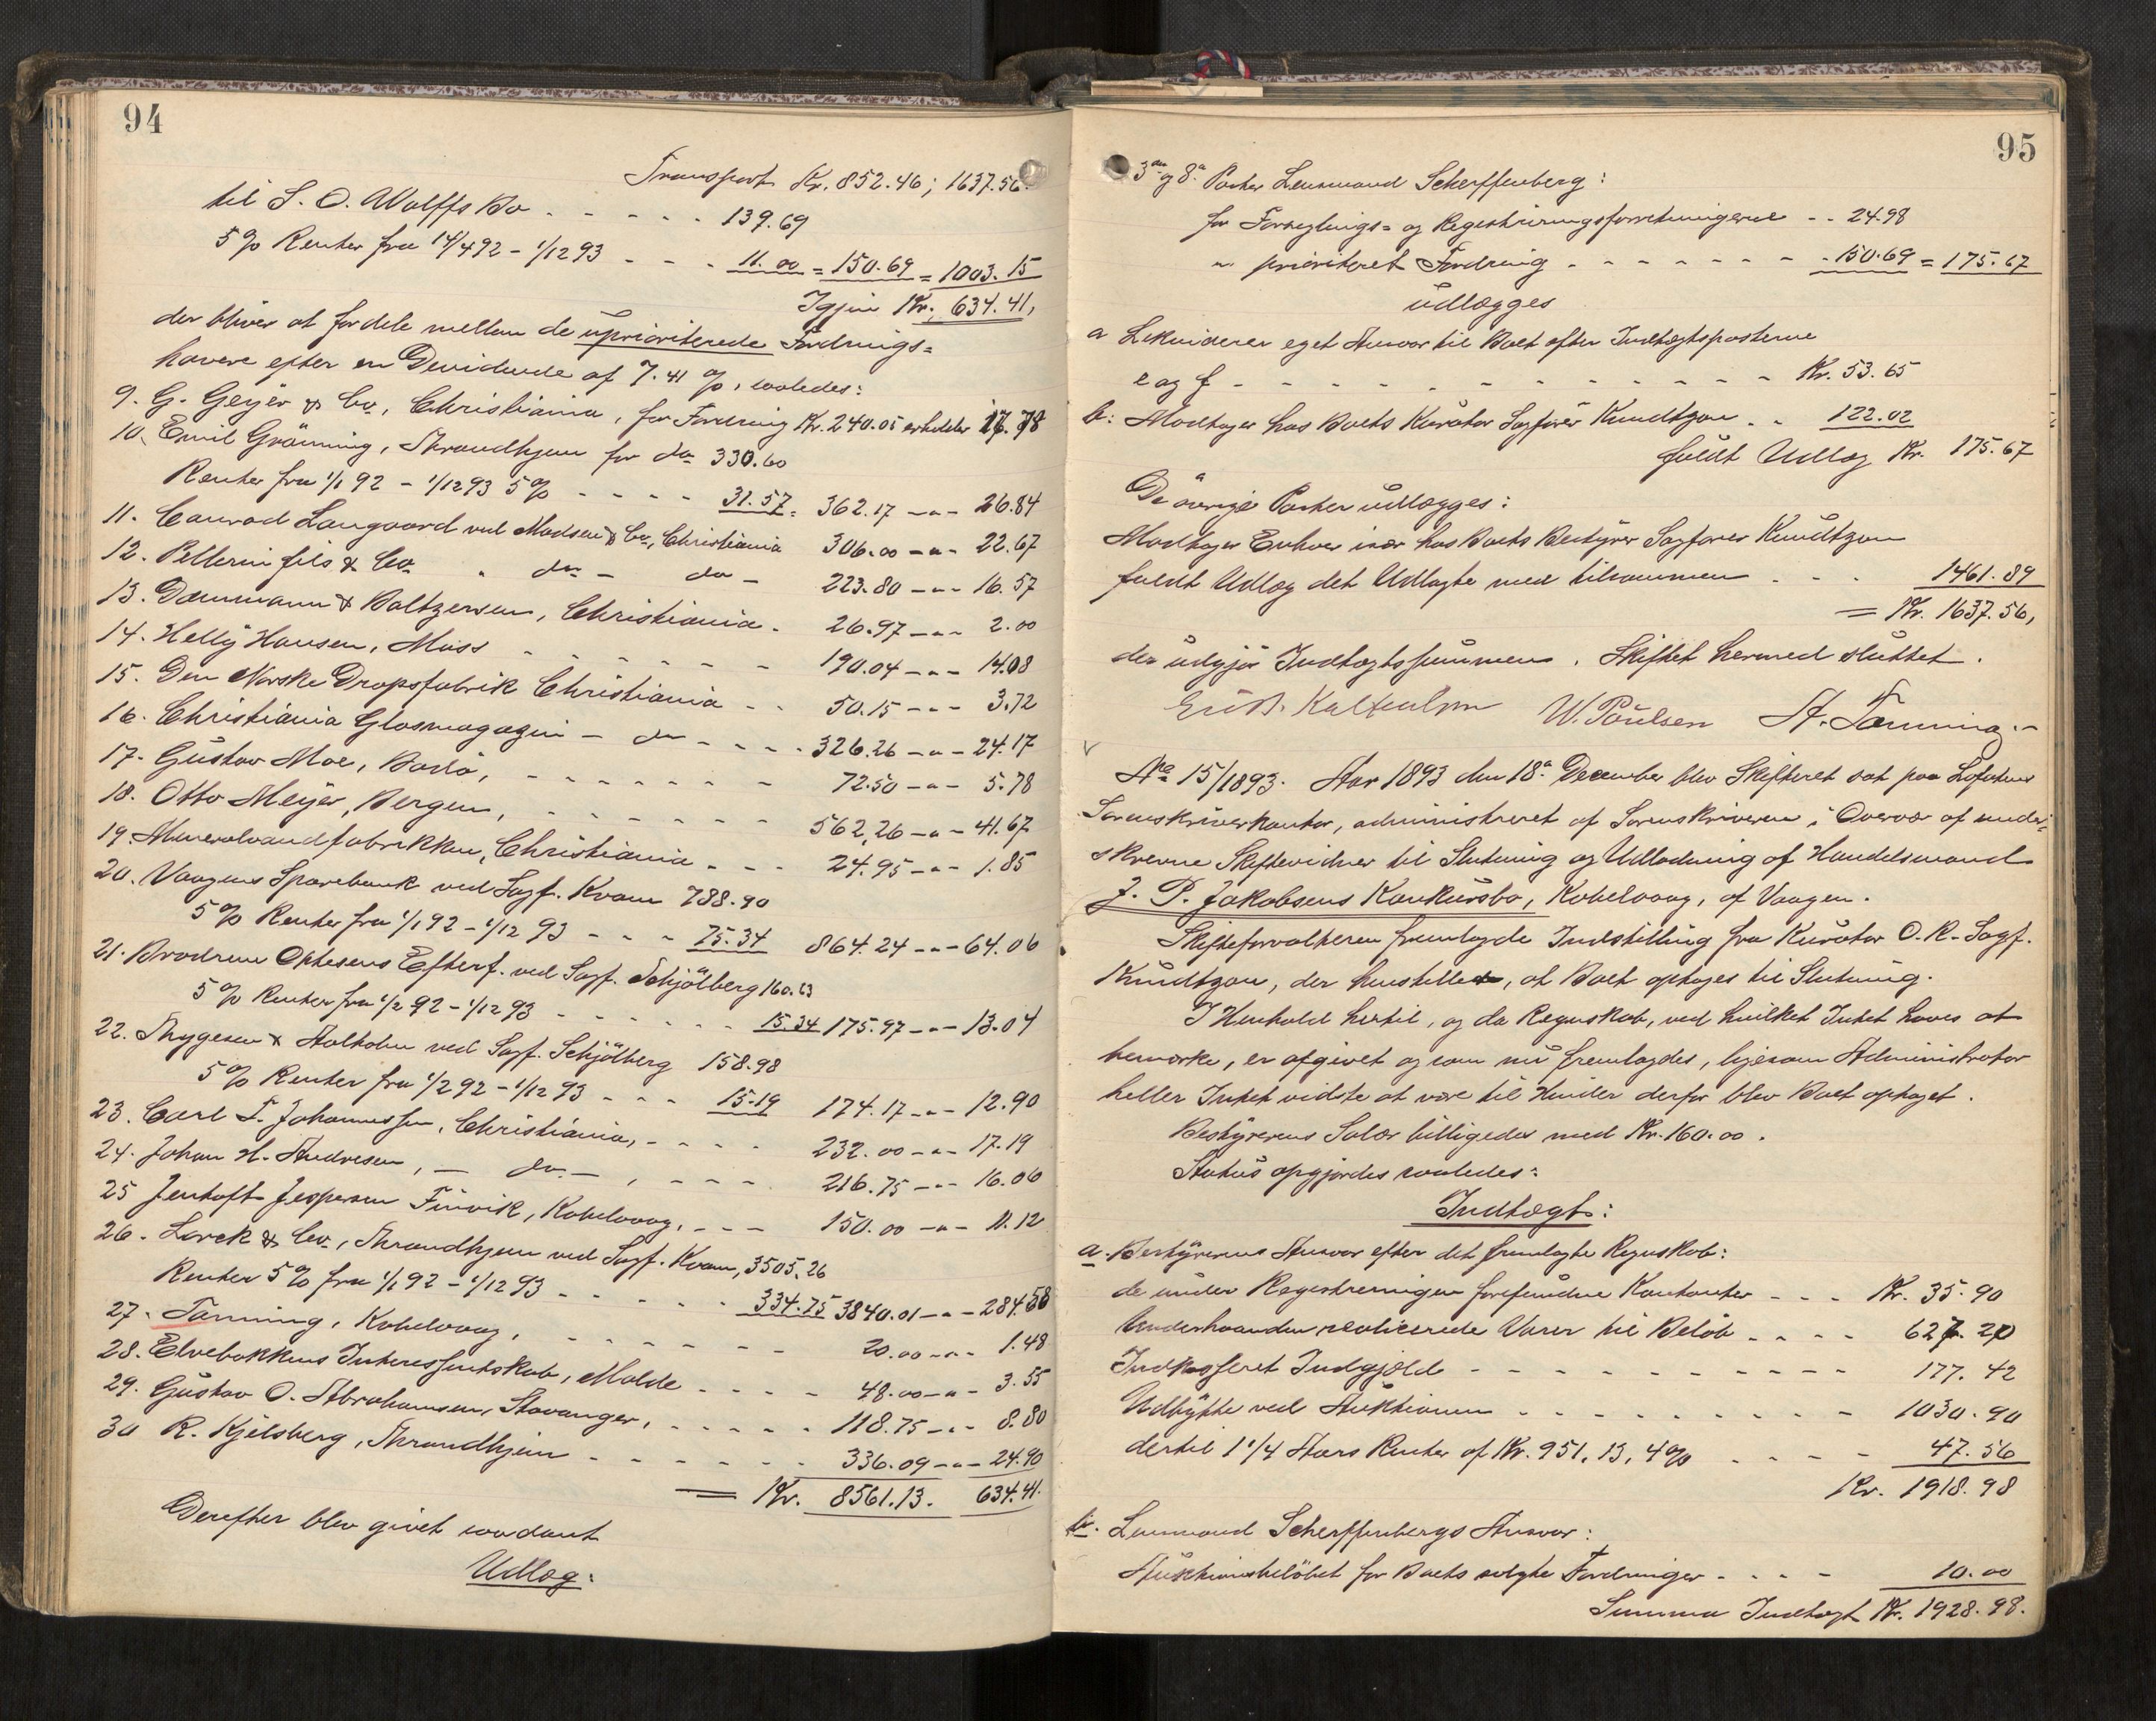 94
Transport Kr. 852.46; 1637.56
til S. O. Wolffs Bo - - - - - 139.69
5 % Renter fra 14/4 92 - 1/12 93 - - - 11.00 = 150.69 = 1003.15
Igjen Kr. 634.41,
der bliver at fordele mellem de uprioriterede Fordrings=
havere efter en Devidende af 7.41 %, saaledes:
9. G. Geijer & Co, Christiania, for Fordring Kr. 240.05 erholder 17.78
10. Emil Grönning, Throndhjem for do 330.60
Renter fra 1/1 92 - 1/12 93 5 % - - - - 31.57 = 362.17 - " - 26.84
11. Conrad Langaard ved Madsen & Co, Christiania 306.00 - " - 22.67
12. Pellerin fils & Co " do - do - 223.80 - " - 16.57
13. Dammann & Baltzersen, Christiania - 26.97 - " - 2.00
14. Helly Hansen, Moss - - - - - - - 190.04 - " - 14.08
15. Den Norske Dropsfabrik Christiania - - 50.15 - " - 3.72
16. Christiania Glasmagazin - do - - - - 326.26 - " - 24.17
17. Gustav Moe, Bodö, - - - - - - - 72.50 - " - 5.78
18. Otto Meijer, Bergen, - - - - - - - 562,26 - " - 41.67
19. Mineralvandfabrikken, Christiania - - - 24.95 - " - 1.85
20. Vaagens Sparebank ved Sagf. Kvam 788.90
5 % Renter fra 1/1 92 - 1/12 93 - - - 75.34 864.24 - " - 64.06
21. Brødrene Ottesens Efterf. ved Sagf. Schjölberg 160.63
5 % Renter fra 1/2 92 - 1/12 93 - - - - - - 15.34 175.97 - " - 13.04
22. Thygesen & Aalholm ved Sagf. Schjölberg 158.98
5 % Renter fra 1/2 92 - 1/12 93 - - - 15.19 174.17 - " - 12.90
23. Carl F. Johannessen, Christiania, - - - - 232.00 - " - 17.19
24. Johan H. Andresen, - do. - , - - - - 216.75 - " - 16.06
25 Jentoft Jespersen Finvik, Kabelvaag, - - - 150.00 - " - 11.12
26. Lorck & Co, Throndhjem ved Sagf. Kvam, 3505.26
Renter 5 % fra 1/1 92 - 1/12 93 - - - - - 334.75 3840.01 - " - 284.58
27. Tänning, Kabelvaag, - - - - - - 20.00 - " - 1.48
28. Elvebakkens Interessentskab, Molde - - - - 48.00 - " - 3.55
29. Gustav O. Abrahamsen, Stavanger, - - - - - 118.75 - " - 8.80
30 R. Kjelsberg, Throndhjem - - - - - - 336.09 - " - 24.90
= Kr. 8561.13. 634.41.
Derefter blev givet saadant
Udlæg:
95
3die og 8de Poster Lensmand Scherffenberg:
for Forseglings= og Registreringsforretningerne - - 24.98
" prioriteret Fordring - - - - - - - 150.69 = 175.67
udlægges
a Lekviderer eget Ansvar til Boet efter Indtægtsposterne
e og f - - - - - - - - - - - - - - Kr. 53.65
b: Modtager hos Boets Kurator Sagfører Knudtzon - - 122.02
fuldt Udlæg Kr. 175.67
De øvrige Poster udlægges:
Modtager Enhver især hos Boets Bestyrer Sagfører Knudtzon
fuldt Udlæg det Udlagte med tilsammen - - - 1461.89
= Kr. 1637.56,
der udgjør Indtægtssummen. Skiftet hermed sluttet.
W. Poulsen A. Tanning
No 15/1893. Aar 1893 den 18de December blev Skifteret sat paa Lofotens
Sorenskriverkontor, administreret af Sorenskriveren i Overvær af under=
skrevne Skiftevidner til Slutning og Udlodning af Handelsmand
J. P. Jakobsens Konkursbo, Kabelvaag, af Vaagen.
Skifteforvalteren fremlagde Indstilling fra Kurator O.R. Sagf.
Knudtzon, der henstiller, at Boet optages til Slutning.
I Henhold hertil, og da Regnskab, ved hvilket Intet haves at
bemærke, er afgivet og som nu fremlagdes, ligesom Administrator
heller Intet vidste at være til Hinder derfor blev Boet optaget.
Bestyrerens Salær billigedes med Kr. 160.00.
Status opgjordes saaledes:
Indtægt:
a. Bestyrerens Ansvar efter det fremlagte Regnskab:
de under Registreringen forefundne Kontanter - - - Kr. 35.90
Underhaanden realiserede Varer til Beløb - - - - 627.20
Indkasseret Indgjæld - - - - - - - - - - 177.42
Udbytte ved Auktionen - - - - - - - - - 1030.90
dertil 1 1/4 Aars Renter af Kr. 951,13, 4 % - - - - 47.56
Kr. 1918.98
b. Lensmand Scherffenbergs Ansvar:
Auktionsbeløbet for Boets solgte Fordringer - - - - 10.00
Summa Indtægt Kr. 1928.98.